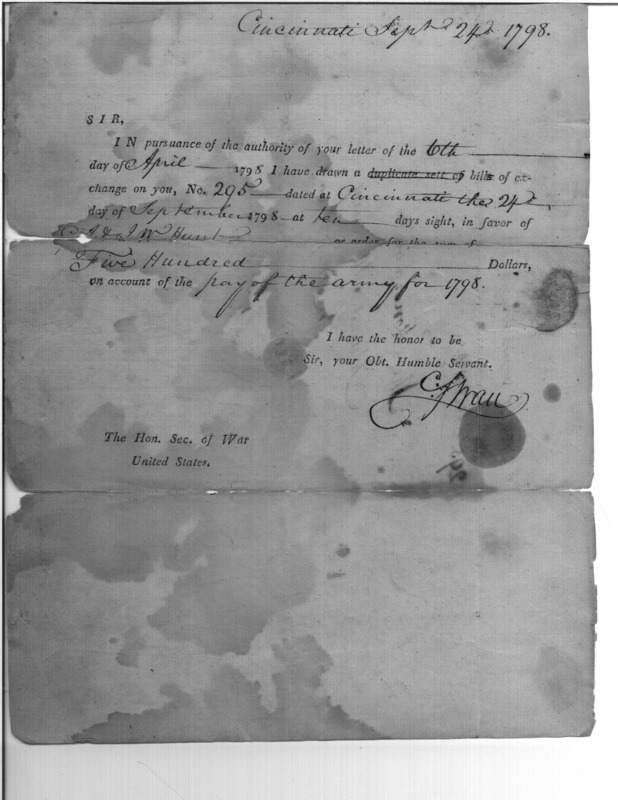 Cincinnati Sept 24th 1798.
SIR,
IN pursuance of the authority of your letter of the 6th
day of April 1798 I have drawn a duplicate sett of bills of ex-
change on you, No. 295 dated at Cincinnati the 24th
day of September 1798 at ten days sight, in favor of
A & J W Hunt or order for the sum of
Five Hundred Dollars,
on account of the pay of the army for 1798.
I have the honor to be
Sir, your Obt. Humble Servant.
C. Swan
The Hon. Sec. of War
United States.